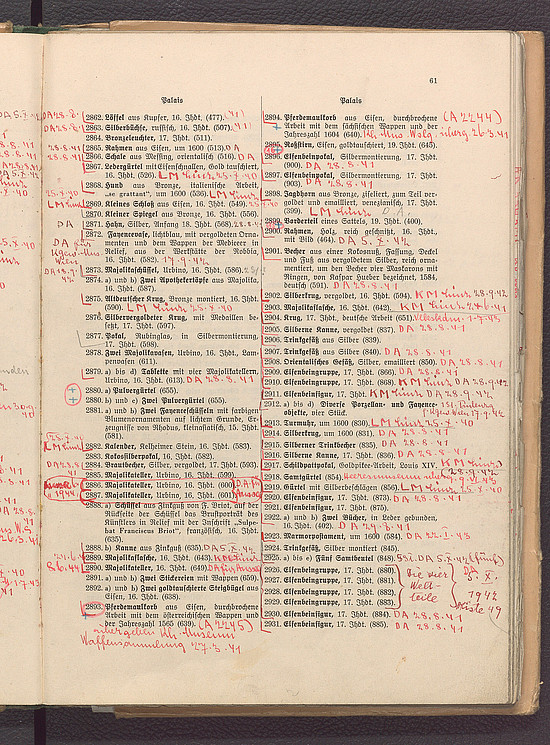 61
Palais
2862. Löffel aus Kupfer, 16. Ihdt. (477).
2863. Silberbüchse, russisch, 16. Ihdt. (507).
2864. Bronzeleuchter, 17. Ihdt. (511).
2865. Rahmen aus Eisen, um 1600 (513). DA
2866. Schale aus Messing, orientalisch (516). DA
2867. Ledergürtel mit Eisenschnallen, Gold tauschiert,
16. Ihdt. (526). LM Linz 25.x.40
2868. Hund aus Bronze, italienische Arbeit,
„se grattant“, um 1600 (536). LM Linz
2869. Kleines Schloß aus Eisen, 16. Ihdt. (549).
2870. Kleiner Spiegel aus Bronze, 16. Ihdt. (556).
2871. Hahn, Silber, Anfang 18. Ihdt. (568). 28.8.41
2872. Fayencevase, lichtblau, mit vergoldeten Orna-
menten und dem Wappen der Mediceer in
Relief, aus der Werkstätte der Robbia,
16. Ihdt. (582). 17.9.42
2873. Majolikaschüssel, Urbino, 16. Ihdt. (586).
2874. a) und b) Zwei Apothekertöpfe aus Majolika,
16. Ihdt. (587).
2875. Altdeutscher Krug, Bronze montiert, 16. Ihdt.
(590). LM Linz 25.x.40
2876. Silbervergoldeter Krug, mit Medaillen be-
setzt, 17. Ihdt. (597).
2877. Pokal, Rubinglas, in Silbermontierung,
17. Ihdt. (598).
2878. Zwei Majolikavasen, Urbino, 16. Ihdt., Lam-
penvasen (611).
2879. a) bis d) Tablette mit vier Majolikatellern,
Urbino, 16. Ihdt. (613). DA 28.8.41
2880. a) Pulvergürtel (655).
2880. b) und c) Zwei Pulvergürtel (655).
2881. a) und b) Zwei Fayenceschüsseln mit farbigen
Blumenornamenten auf lichtem Grunde, Er-
zeugnisse von Rhodus, kleinasiatisch, 15. Ihdt.
(581).
2882. Kalender, Kelheimer Stein, 16. Ihdt. (583).
2883. Kokossilberpokal, 16. Ihdt. (582).
2884. Brautbecher, Silber, vergoldet, 17. Ihdt. (593).
2885. Majolikateller, Urbino, 16. Ihdt. (599).
2886. Majolikateller, Urbino, 16. Ihdt. (600).
2887. Majolikateller, Urbino, 16. Ihdt. (601).
2888. a) Schüssel aus Zinkguß von F. Briot, auf der
Rückseite der Schüssel das Brustporträt des
Künstlers in Relief mit der Inschrift „Sulpe-
bat Franciscus Briot“, französisch, 16. Ihdt.
(635).
2888. b) Kanne aus Zinkguß (635). DA 5.x.42
2889. Majolikaflasche, 16. Ihdt. (643).
2890. Majolikateller, 16. Ihdt. (649).
2891. a) und b) Zwei Stickereien mit Wappen (659).
2892. a) und b) Zwei goldtauschierte Steigbügel aus
Eisen, 16. Ihdt. (638).
2893. Pferdemaulkorb aus Eisen, durchbrochene
Arbeit mit dem österreichischen Wappen und
der Jahreszahl 1565 (639). (A 2245)
übergeben Kh. Museum
Waffensammlung 27.3.41
Palais
2894. Pferdemaulkorb aus Eisen, durchbrochene (A 2244)
Arbeit mit dem sächsischen Wappen und der
Jahreszahl 1604 (640). Kh. Mus. 26.3.41
2895. Roßstirn, Eisen, goldtauschiert, 19. Ihdt. (645).
2896. Elfenbeinpokal, Silbermontierung, 17. Ihdt.
(900). DA 28.8.41
2897. Elfenbeinpokal, Silbermontierung, 17. Ihdt.
(903). DA 28.8.41
2898. Jagdhorn aus Bronze, ziseliert, zum Teil ver-
goldet und emailliert, venezianisch, 17. Ihdt.
(399). LM Linz D.A.
2899. Vorderteil eines Sattels, 19. Ihdt. (400).
2900. Rahmen, Holz, reich geschnitzt, 16. Ihdt.,
mit Bild (464). DA 5.x.42
2901. Becher aus einer Kokosnuß, Fassung, Deckel
und Fuß aus vergoldetem Silber, reich orna-
mentiert, um den Becher vier Maskarons mit
Ringen, von Kaspar Hueber bezeichnet, 1584,
deutsch (591). DA 28.8.41
2902. Silberkrug, vergoldet, 16. Ihdt. (594). KM Linz 28.9.42
2903. Majolikaflasche, 16. Ihdt. (642). KM Linz
2904. Krug, 17. Ihdt., deutsche Arbeit (651).
2905. Silberne Kanne, vergoldet (837). DA 28.8.41
2906. Trinkgefäß aus Silber (839).
2907. Trinkgefäß aus Silber (840). DA 28.8.41
2908. Orientalisches Gefäß, Silber, emailliert (850). DA 28.8.41
2909. Elfenbeingruppe, 17. Ihdt. (866). DA 28.8.41
2910. Elfenbeingruppe, 17. Ihdt. (868). KM Linz DA 28.9.42
2911. Elfenbeinfigur, 17. Ihdt. KM Linz DA 28.9.42
2912. a) bis d) Diverse Porzellan- und Fayence-
objekte, vier Stück.
2913. Sturmuhr, um 1600 (830). LM Linz 25.x.40
2914. Silberkrug, um 1600 (831). DA 28.8.41
2915. Silberner Trinkbecher (835). DA 28.8.41
2916. Silberne Kanne (836). DA 28.8.41
2917. Schildpattpokal, Goldpikee-Arbeit, Louis XIV. KM Linz
2918. Samtgürtel (854).
2919. Gürtel mit Silberbeschlägen (856). LM Linz 25.x.40
2920. Elfenbeinfigur, 17. Ihdt. (873). DA 28.8.41
2921. Elfenbeinfigur, 17. Ihdt. (875).
2922. a) und b) Zwei Bücher, in Leder gebunden,
16. Ihdt. (402). DA 29.8.41
2923. Marmorpostament, um 1600 (584). DA 22.I.43
2924. Trinkgefäß, Silber montiert (845).
2925. a) bis e) Fünf Samtbeutel (848). DA 5.x.42 (fünf)
2926. Elfenbeingruppe, 17. Ihdt. (880).
2927. Elfenbeingruppe, 17. Ihdt. (881).
2928. Elfenbeingruppe, 17. Ihdt. (882).
2929. Elfenbeingruppe, 17. Ihdt. (883).
die vier
Welt-
teile
DA
5.x.
1942
Kiste 49
2930. Elfenbeinfigur, 17. Ihdt. (884). DA 28.8.41
2931. Elfenbeinfigur, 17. Ihdt. (885). DA 28.8.41